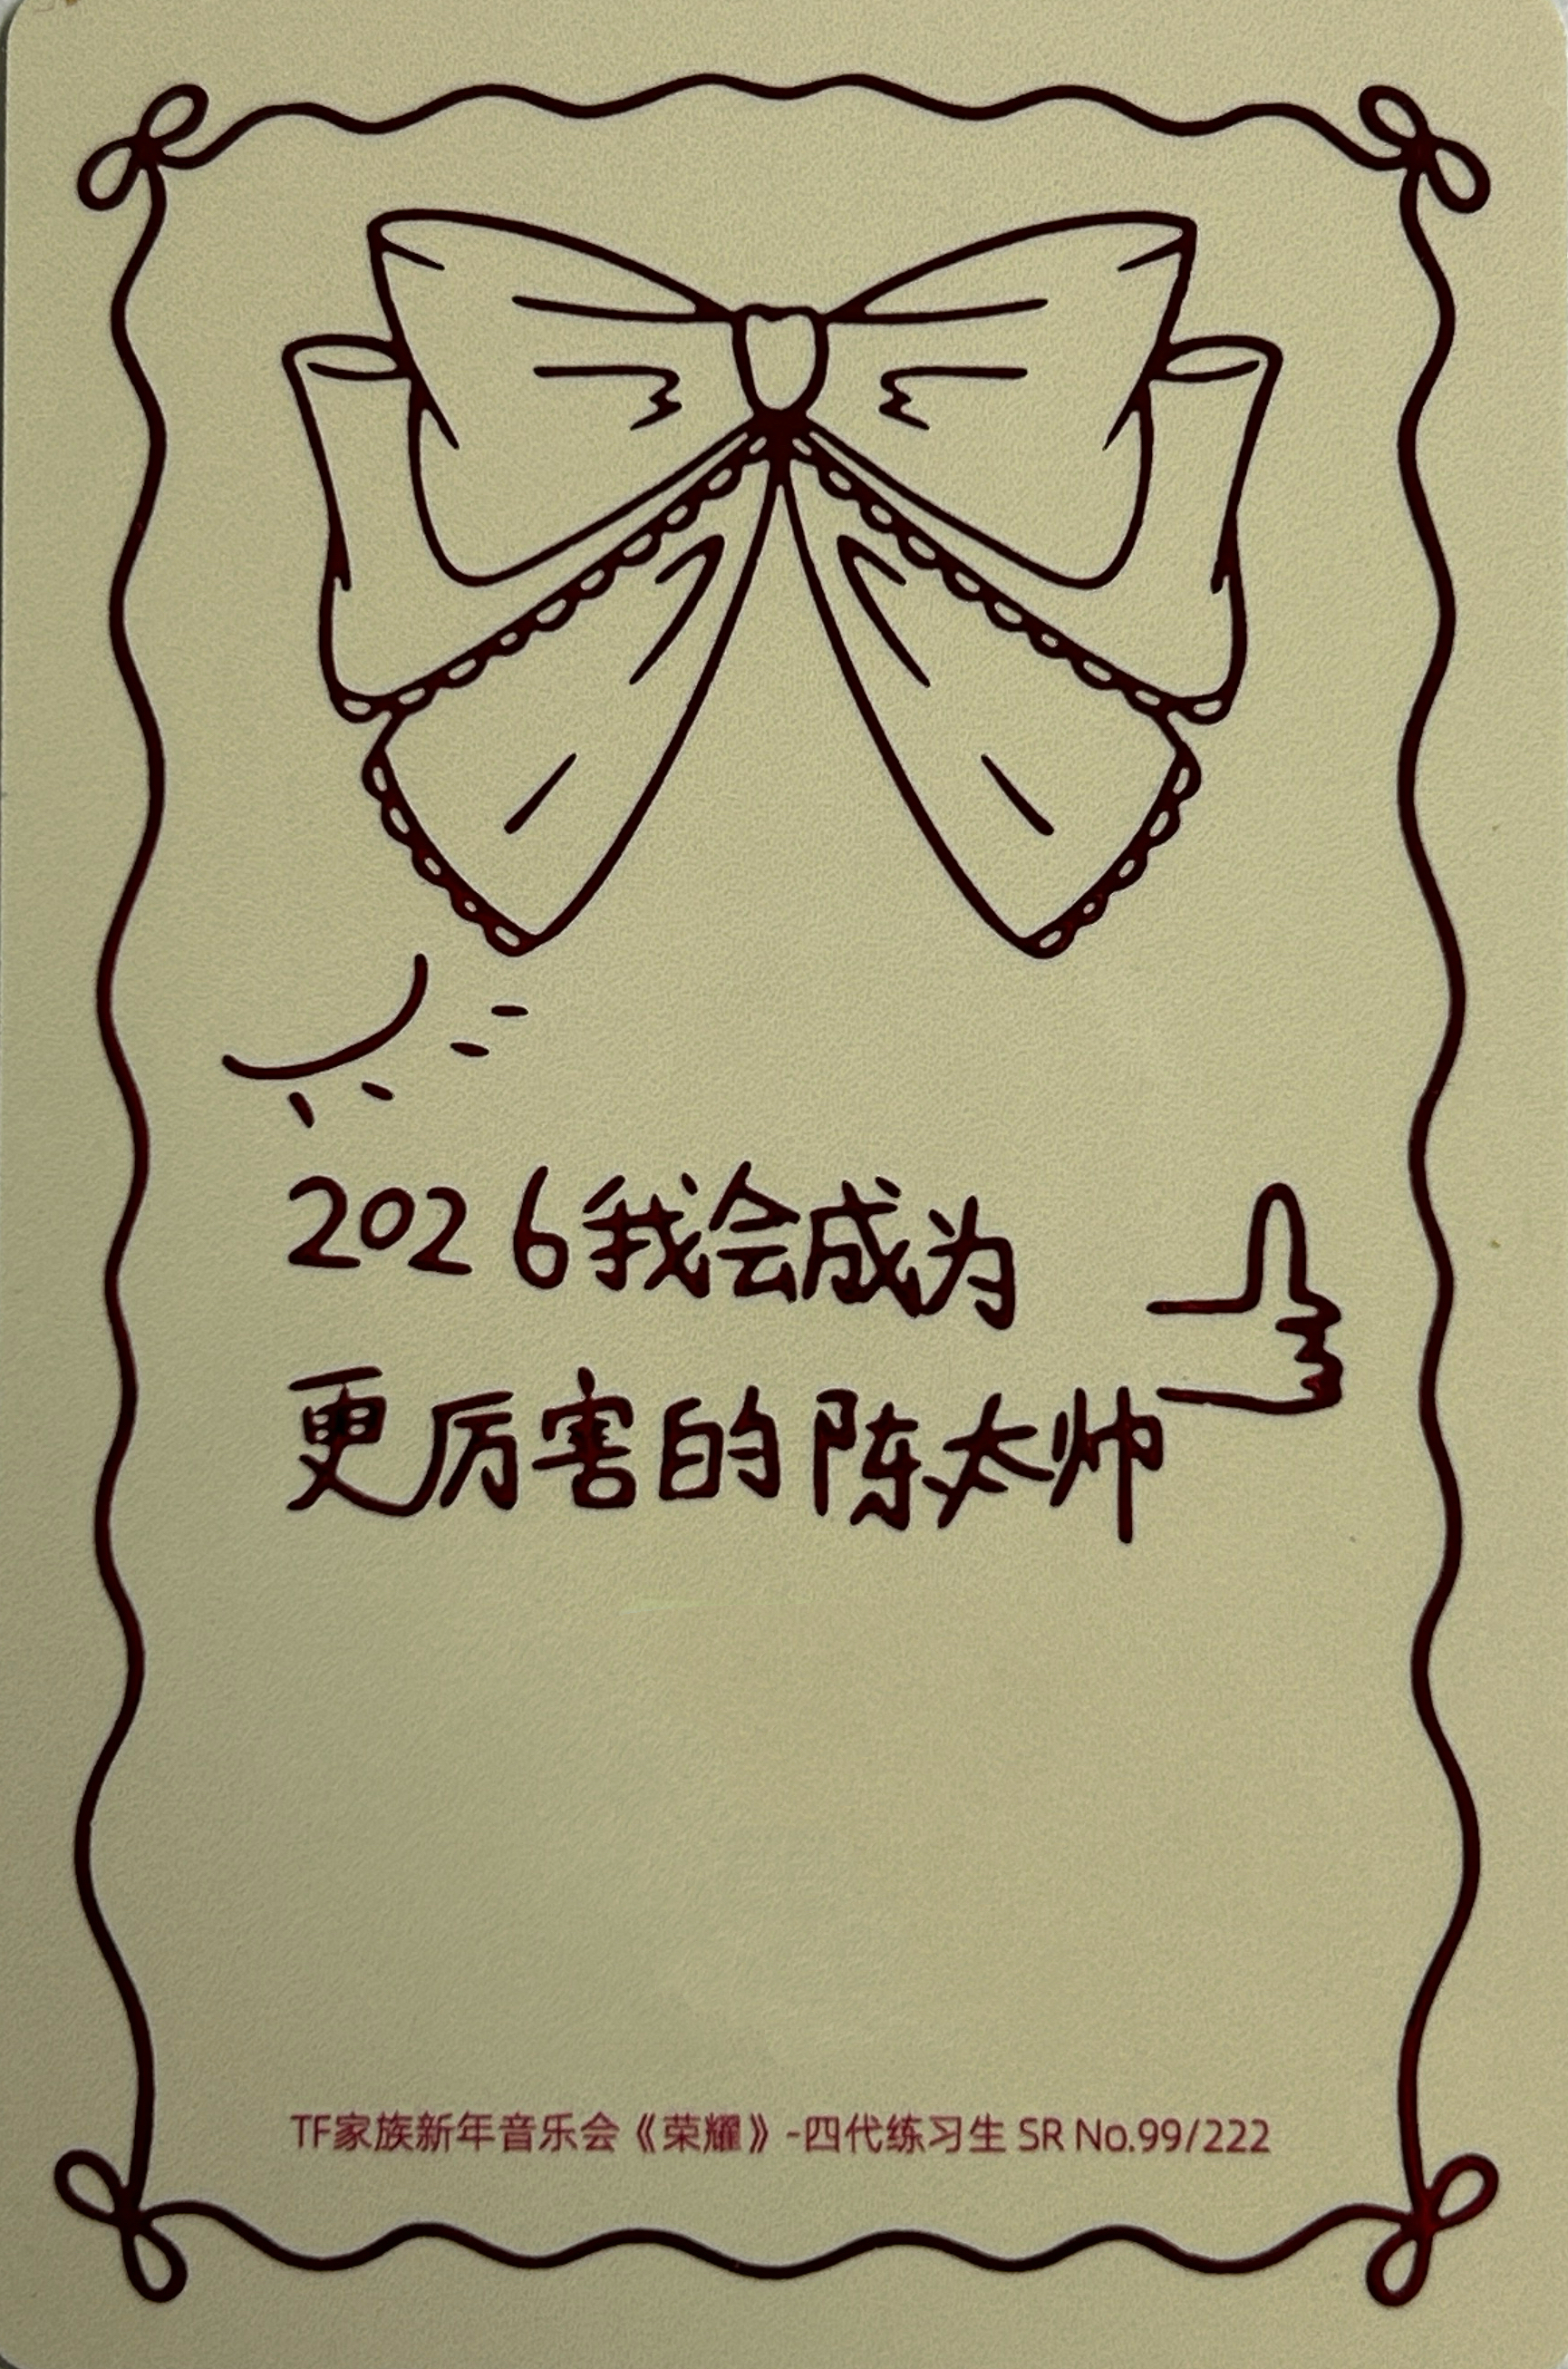 2026我会成为
更厉害的陈太帅
TF家族新年音乐会《荣耀》-四代练习生 SR No.99/222